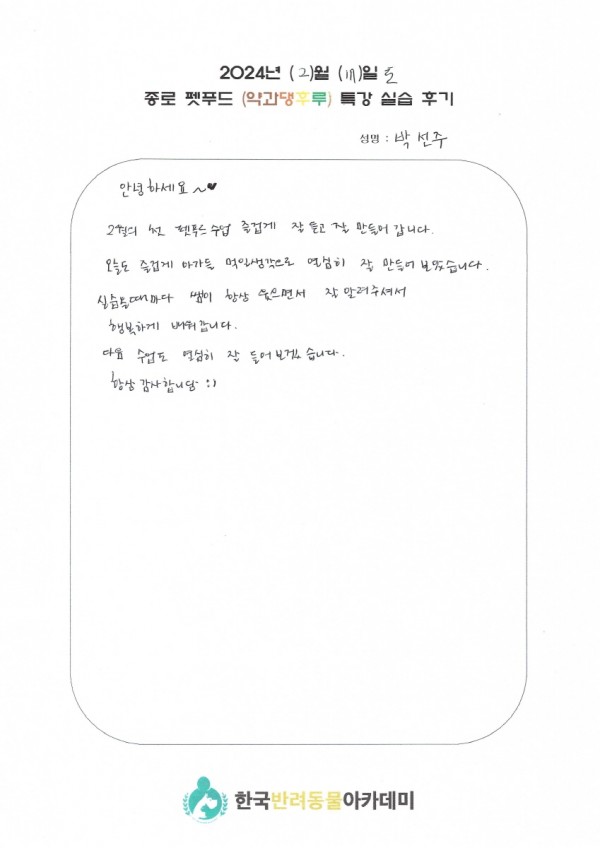 2024년 (2)월 ( )일 토
종로 펫푸드 (약과댕후루) 특강 실습 후기
성명 : 박선주
안녕하세요~♥
2월의 첫 펫푸드 수업 즐겁게 잘 듣고 잘 만들어 갑니다.
오늘도 즐겁게 아가들 먹일생각으로 열심히 잘 만들어 보았습니다.
실습들때마다 쌤이 항상 웃으면서 잘 알려주셔서
행복하게 배워갑니다.
다음 수업도 열심히 잘 들어보겠습니다.
항상 감사합니당 :)
한국반려동물아카데미